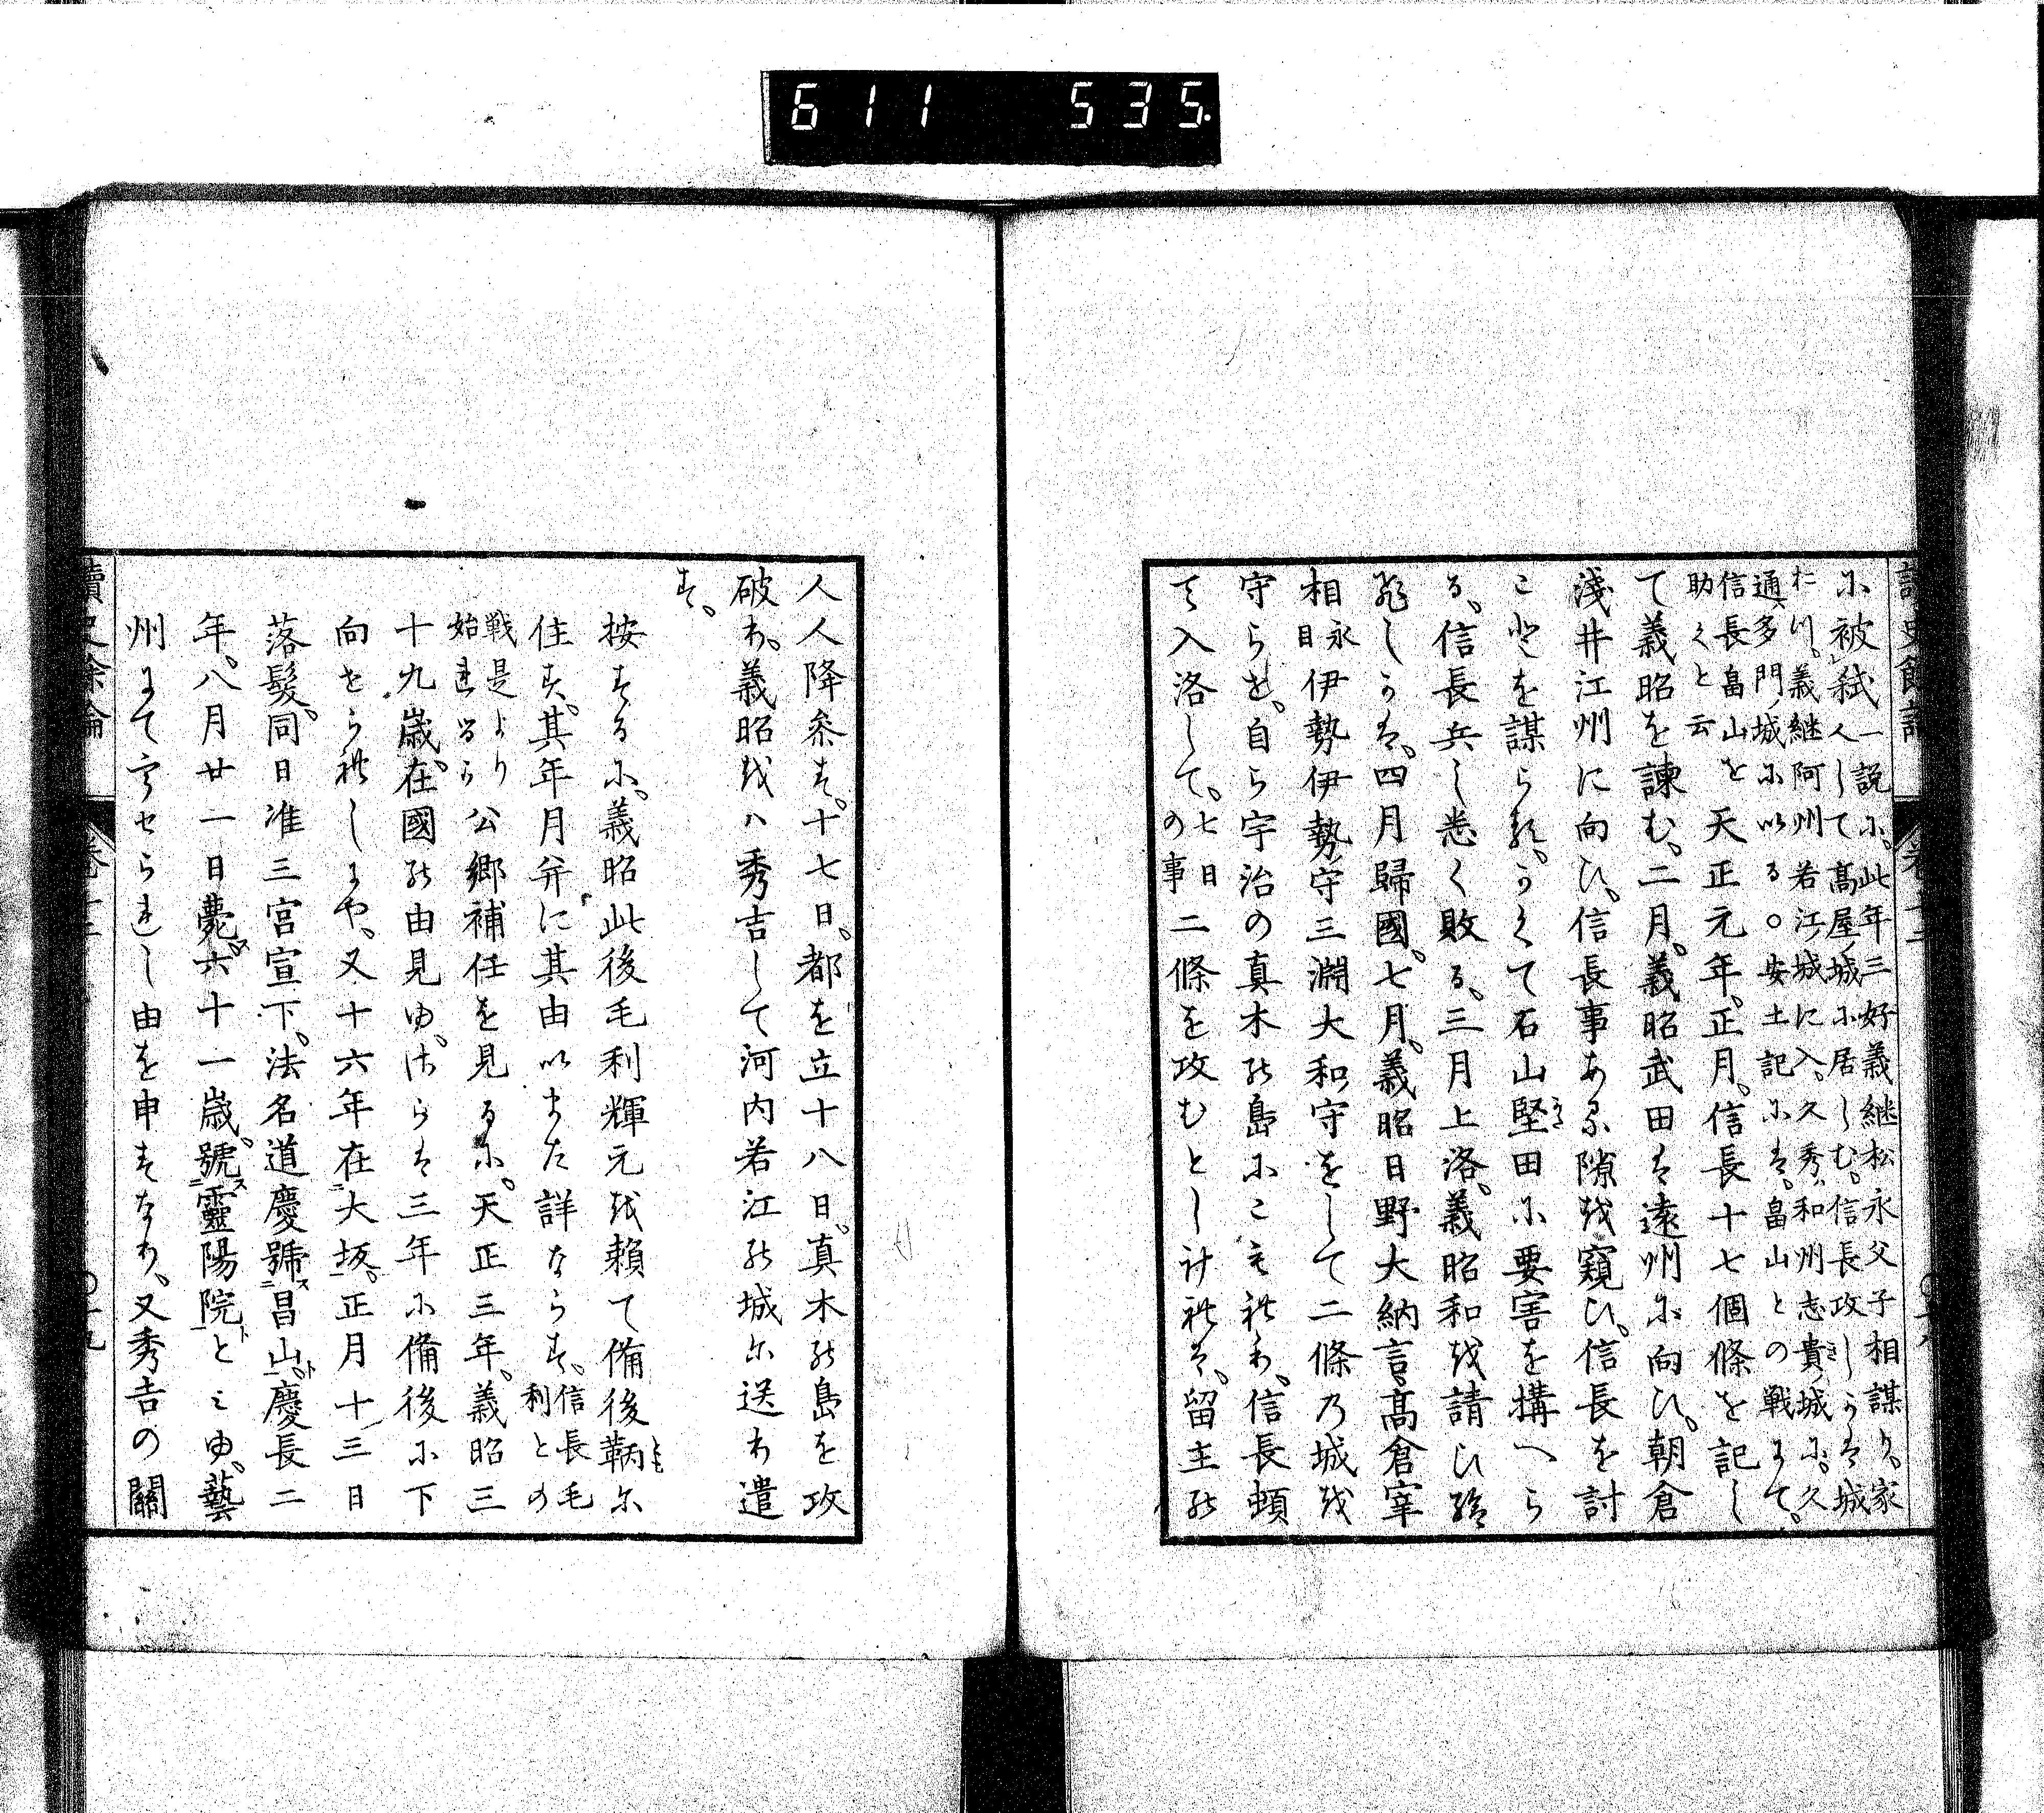 611 535.
に被弑人して髙屋ノ城に居しむ。信長攻しかは城
一説に、此年三好義継松永父子相謀り、家
たり。義継阿州若江ノ城に入。久秀ハ和州志貴ノ城に。久
通ハ多門ノ城にいる○安土記には。畠山との戦にて。
信長畠山を
助くと云
天正元年。正月。信長十七個條を記し
て義昭を諫む。二月。義昭武田は遠州に向ひ。朝倉
淺井江州に向ひ。信長事ある隙を窺ひ。信長を討
ことを謀らる。かくて石山堅田に要害を構へら
る。信長兵し悉く敗る。三月上洛。義昭和を請ひ給
ひしかは。四月歸國。七月。義昭日野大納言髙倉宰
相永相伊勢伊勢ノ守三淵大和守をして二條の城を
守らせ。自ら宇治の真木の島にこもれり。信長頓
て入洛して。七日の事二條を攻むとし計れは。留主の
人人降参す。十七日。都を立十八日。真木の島を攻
破り。義昭をハ秀吉して河内若江の城に送り遣
す。
按するに。義昭此後毛利輝元を頼て備後鞆に
住す。其年月并に其由いまた詳ならす。信長毛利との
戦是より始れるか
公卿補任を見るに。天正三年。義昭三
十九歳。在國の由見ゆ。さらは三年に備後に下
向せられしにや。又十六年在大坂。正月十三日
落髪。同日准三宮宣下。法名道慶號昌山。慶長二
年。八月廿一日薨。六十一歳。號靈陽院とミゆ。藝
州にてうせられし由を申すなり。又秀吉の關
讀史餘論 卷十二 〇十九